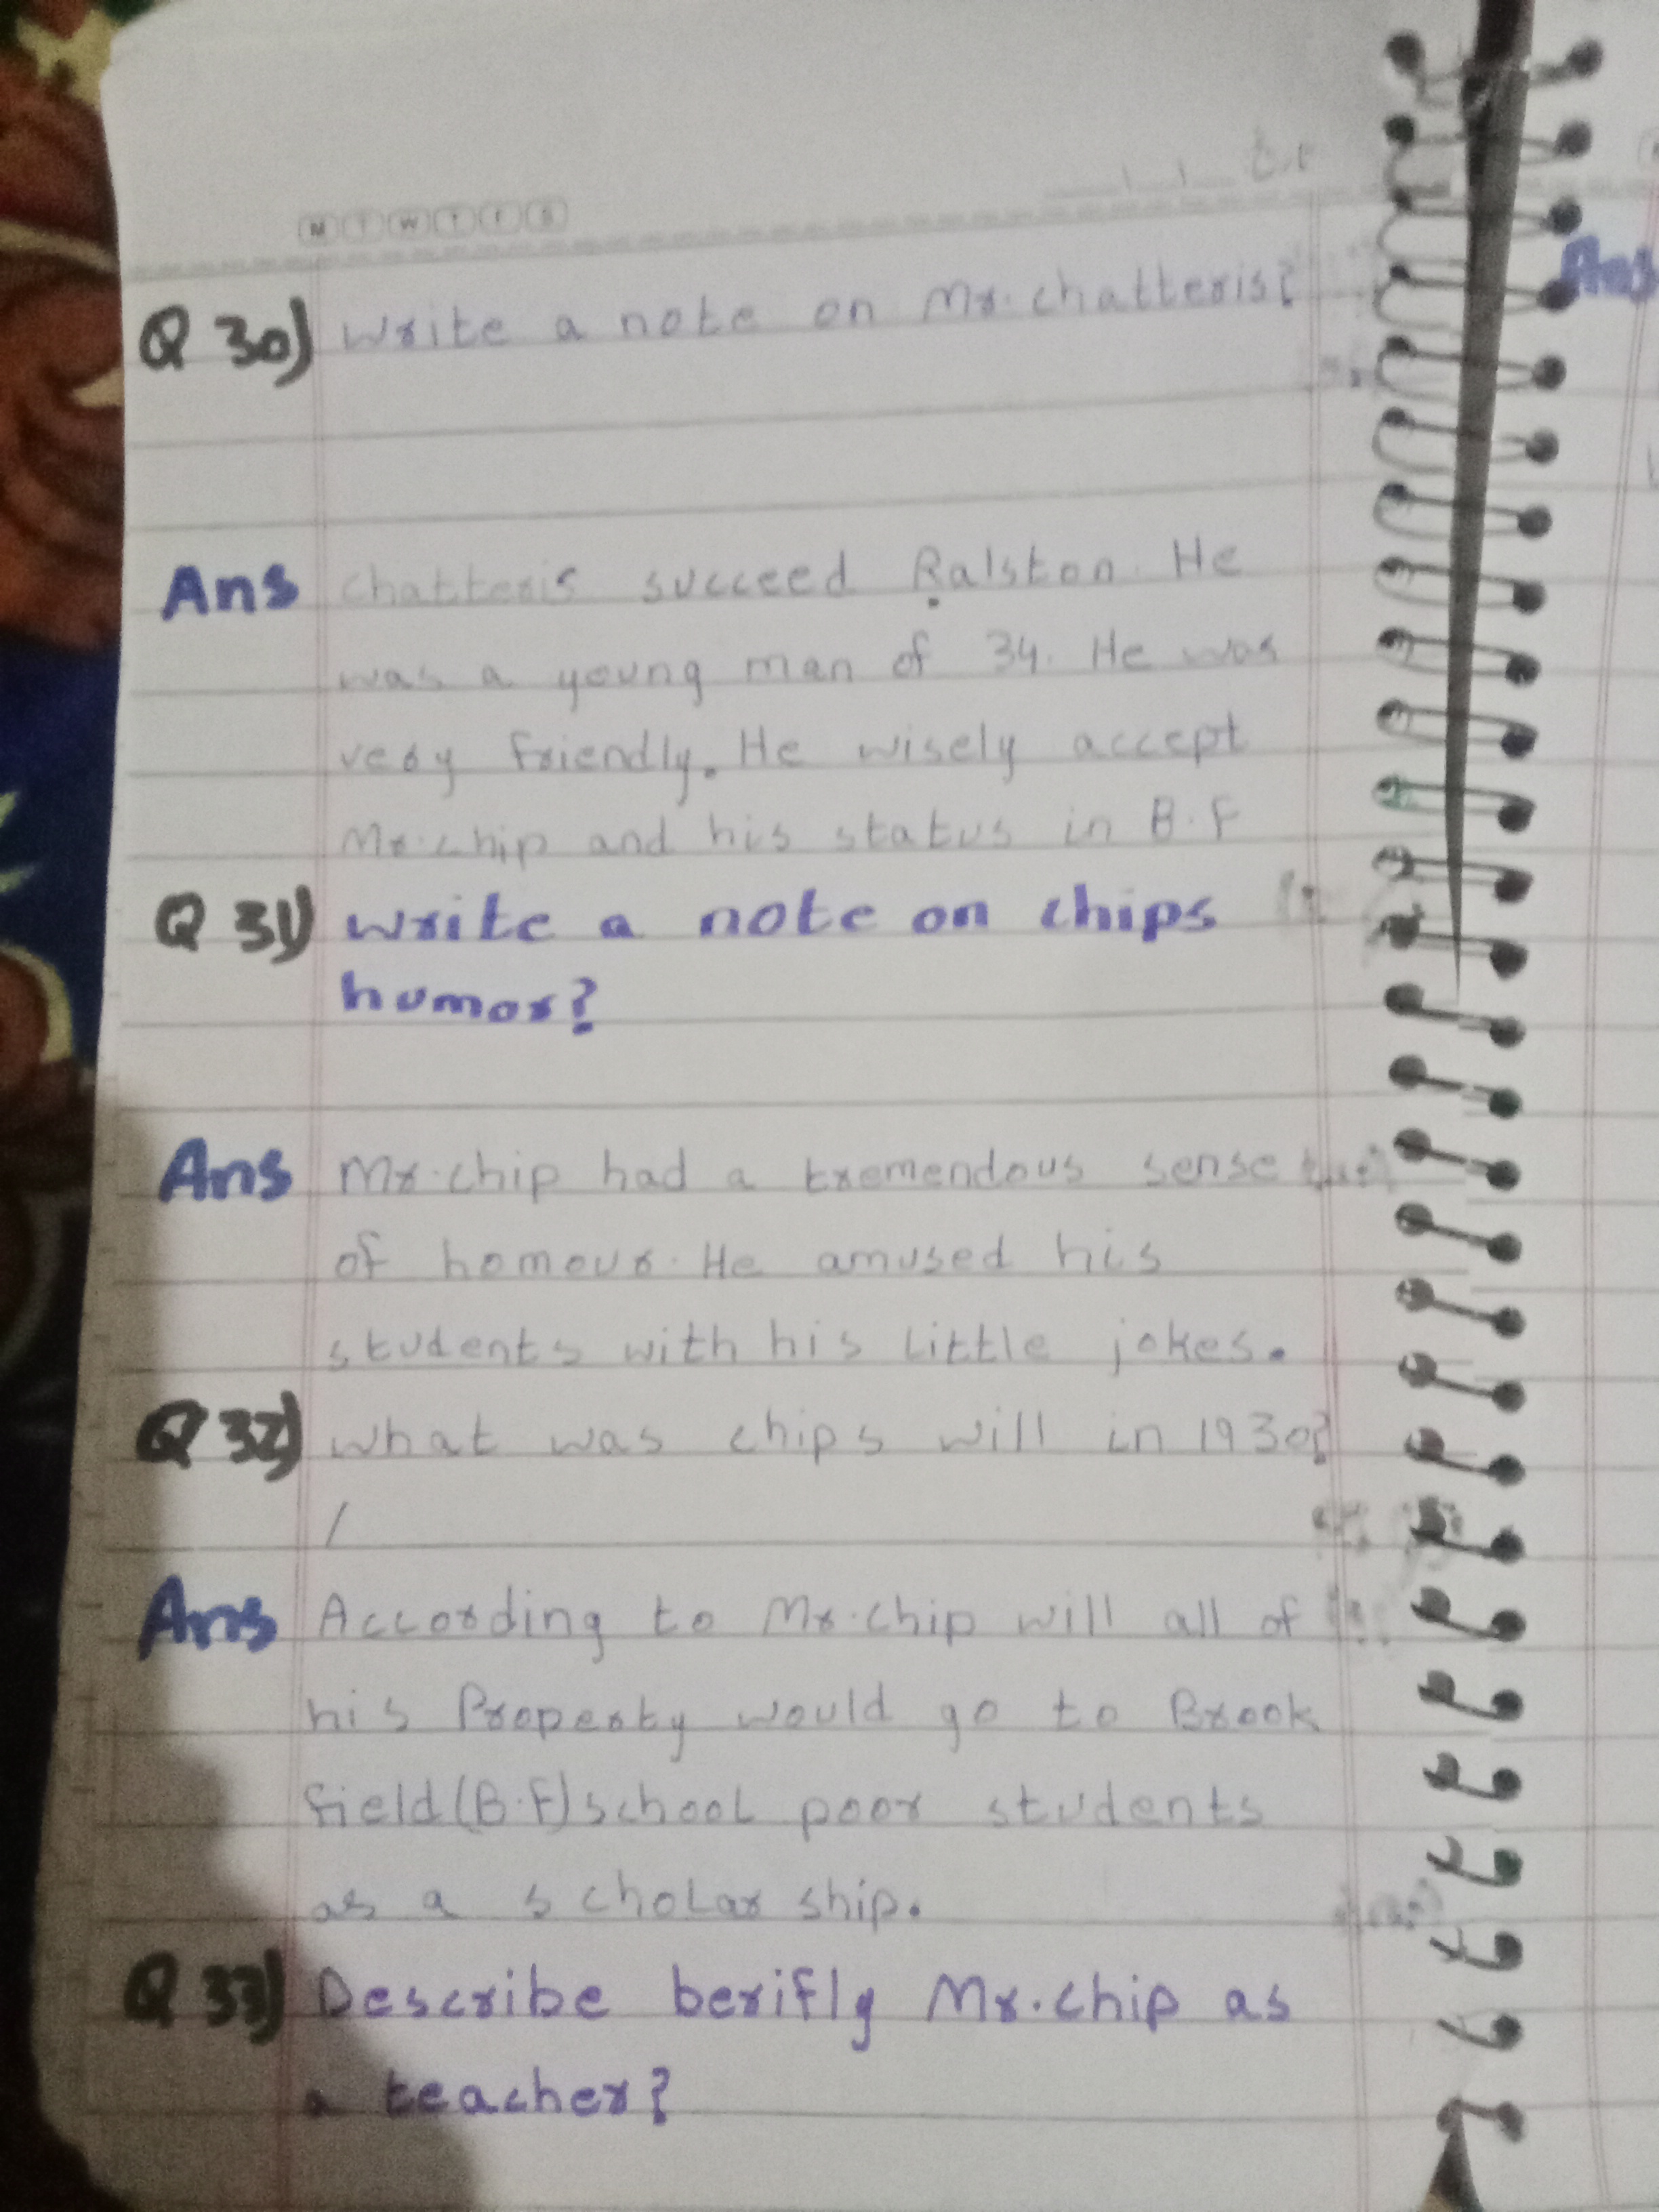 M T W T F S
Q 30) Write a note on Mr. chatteris?
Ans chatteris succeed Ralston. He
was a young man of 34. He was
very friendly. He wisely accept
Mr. chip and his status in B.F
Q 31) write a note on chips
humor?
Ans Mr. chip had a tremendous sense
of homour. He amused his
students with his little jokes.
Q 32) what was chips will in 1930?
/
Ans According to Mr. chip will all of
his Property would go to Brook
field (B.F) school poor students
as a scholar ship.
Q 33) Describe berifly Mr. chip as
a teacher?
Ans